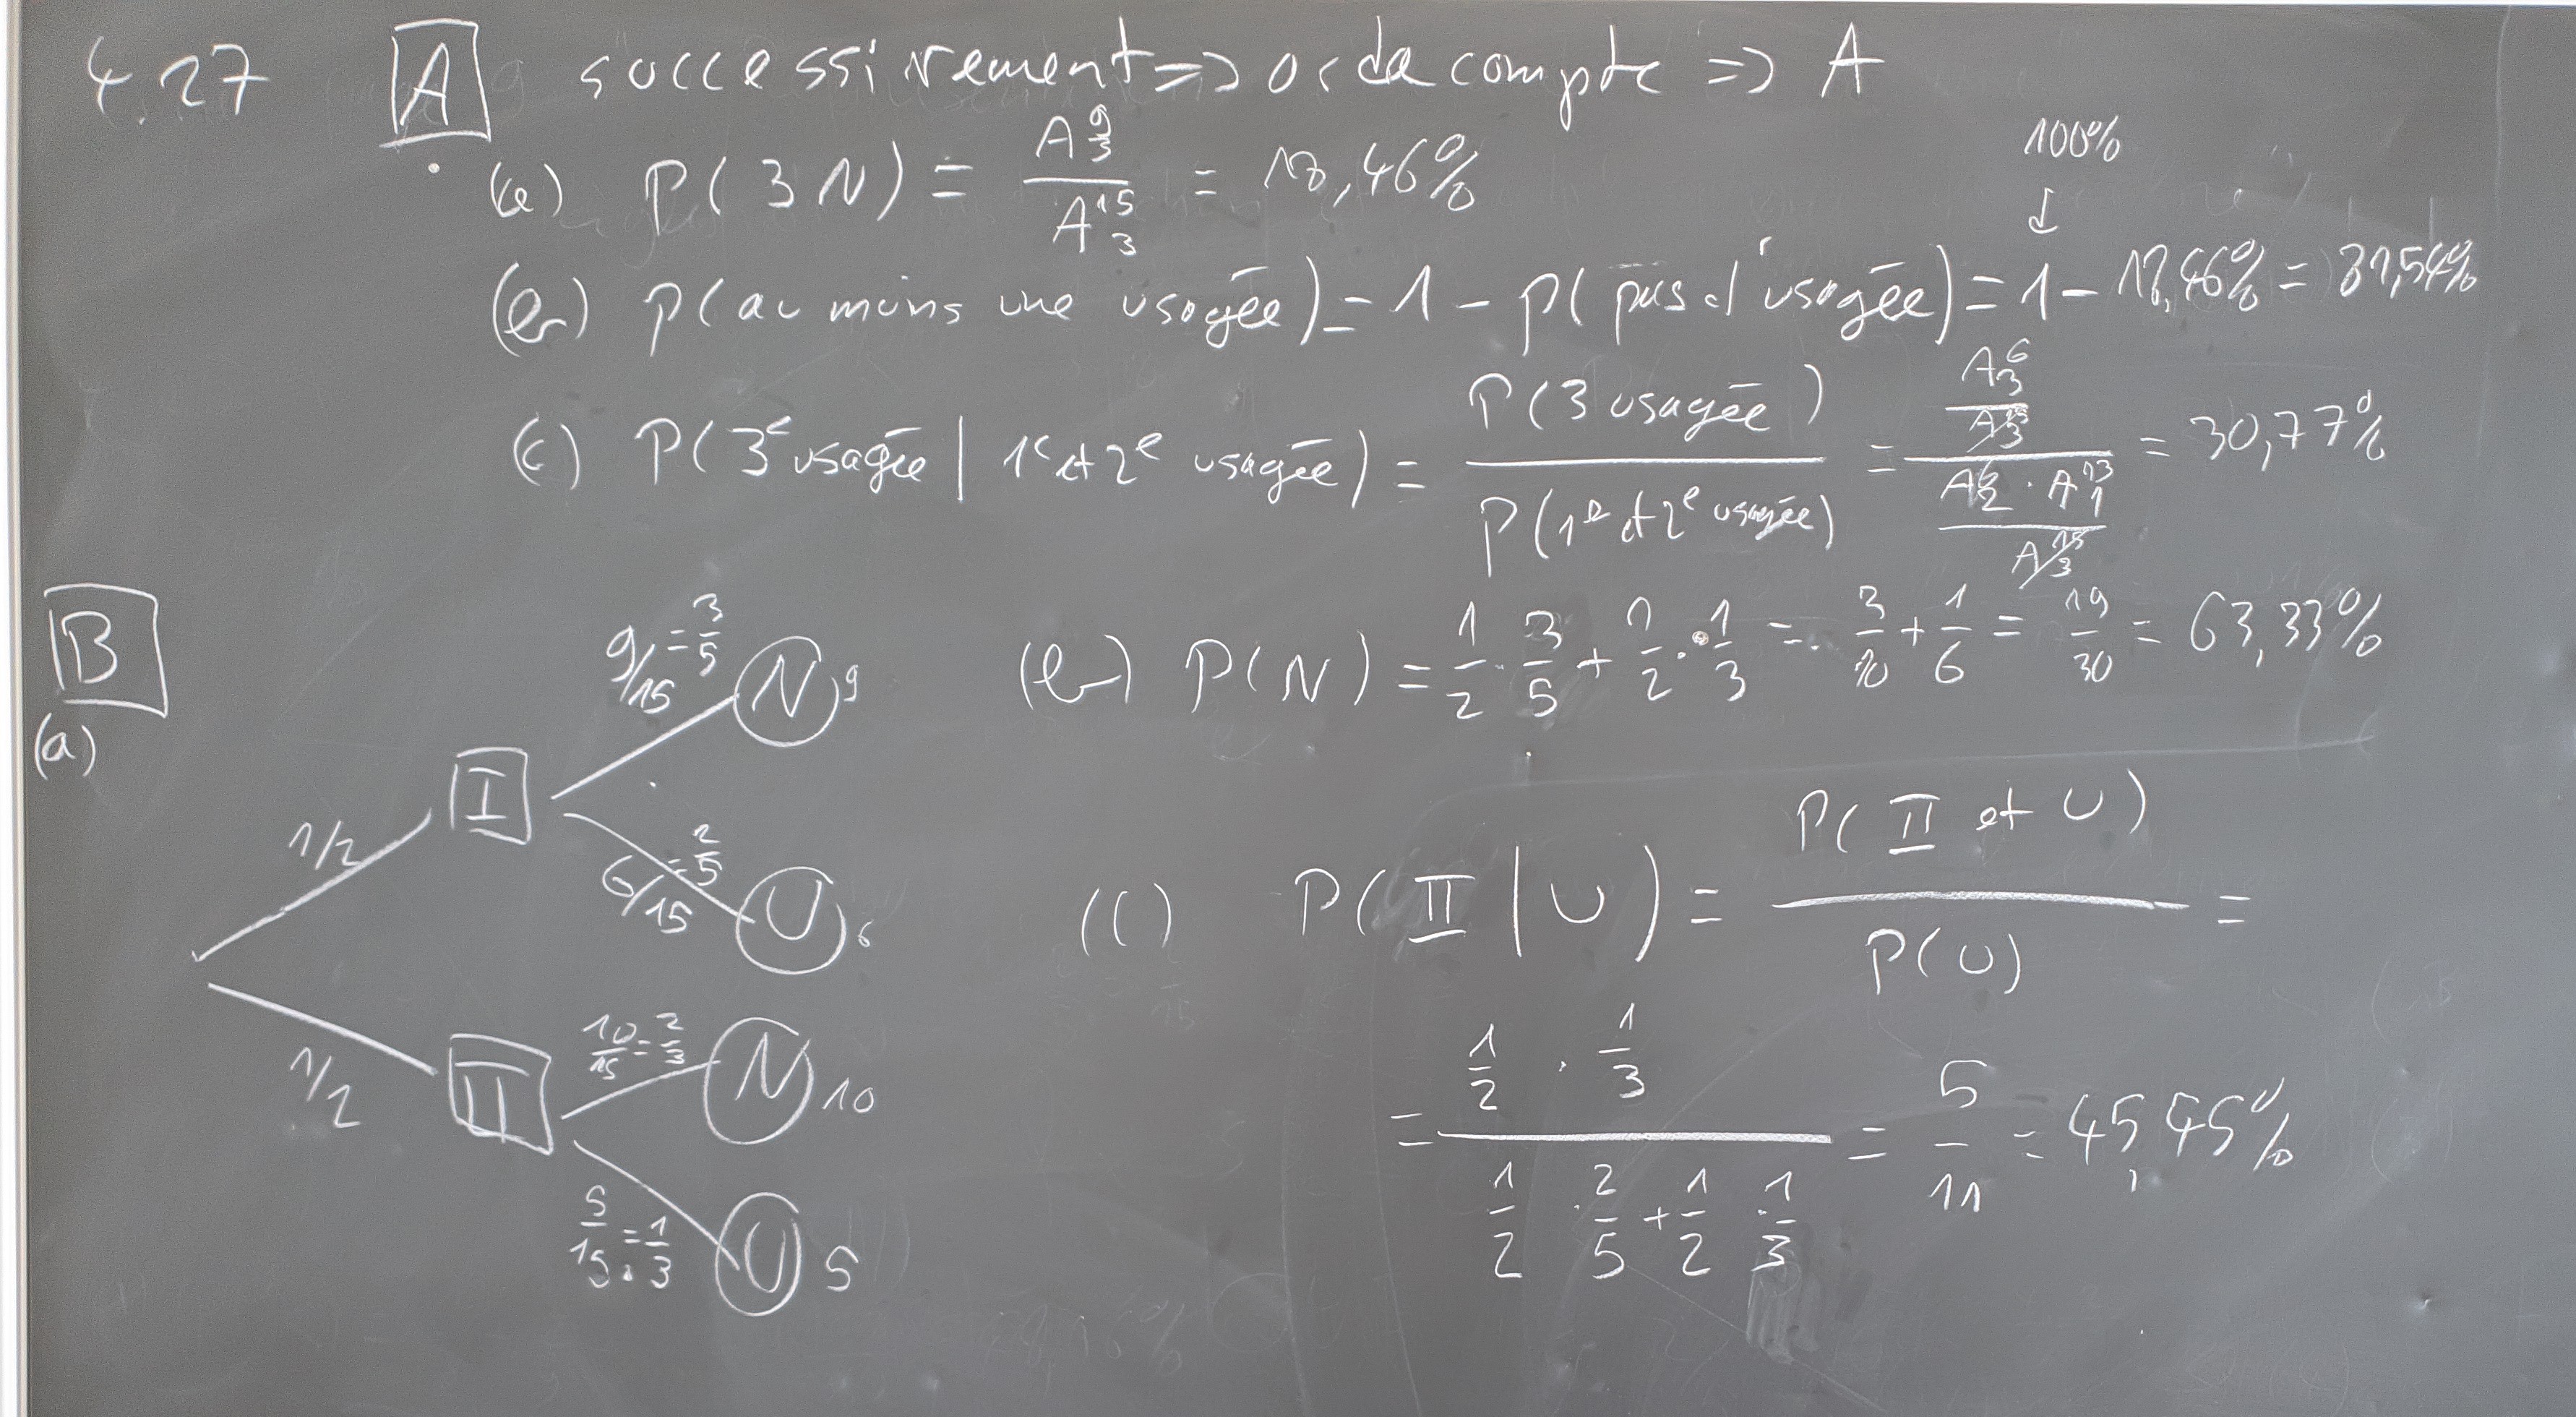 4.27 A successivement => ordre compte => A
(a) P(3N) = A⁹₃ / A¹⁵₃ = 18,46%
100%
↓
(b) P(au moins une usagée) = 1 - P(pas d'usagée) = 1 - 18,46% = 81,54%
(c) P(3e usagée | 1e et 2e usagée) = P(3 usagée) / P(1e et 2e usagée) = (A⁶₃ / A¹⁵₃) / (A⁶₂ · A¹³₁ / A¹⁵₃) = 30,77%
B
(a)
1/2 I 9/15 = 3/5 N 9
6/15 = 2/5 U 6
1/2 II 10/15 = 2/3 N 10
5/15 = 1/3 U 5
(b) P(N) = 1/2 · 3/5 + 1/2 · 1/3 = 3/10 + 1/6 = 19/30 = 63,33%
(c) P(II | U) = P(II et U) / P(U) =
= (1/2 · 1/3) / (1/2 · 2/5 + 1/2 · 1/3) = 5/11 = 45,45%